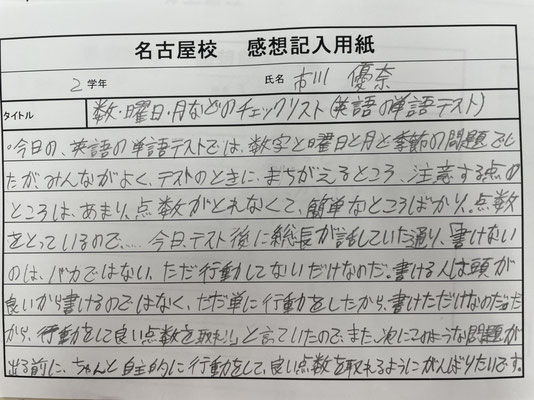 名古屋校　感想記入用紙
2 学年　氏名 市川 優奈
タイトル 数・曜日・月などのチェックリスト(英語の単語テスト)
・今日の、英語の単語テストでは、数字と曜日と月と季節の問題でし
たが、みんながよく、テストのときに、まちがえるところ、注意する点の
ところは、あまり、点数がとれなくて、簡単なところばかり。点数
をとっているので、… 今日、テスト後に総長が話していた通り、「書けない
のは、バカではない、ただ行動してないだけなのだ。書ける人は頭が
良いから書けるのではなく、ただ単に行動をしたから、書けただけなのだ。だ
から、行動をして良い点数を取れ!」と言っていたので、また、次にこのような問題が
出る前に、ちゃんと自主的に行動をして、良い点数を取れるようにがんばりたいです。